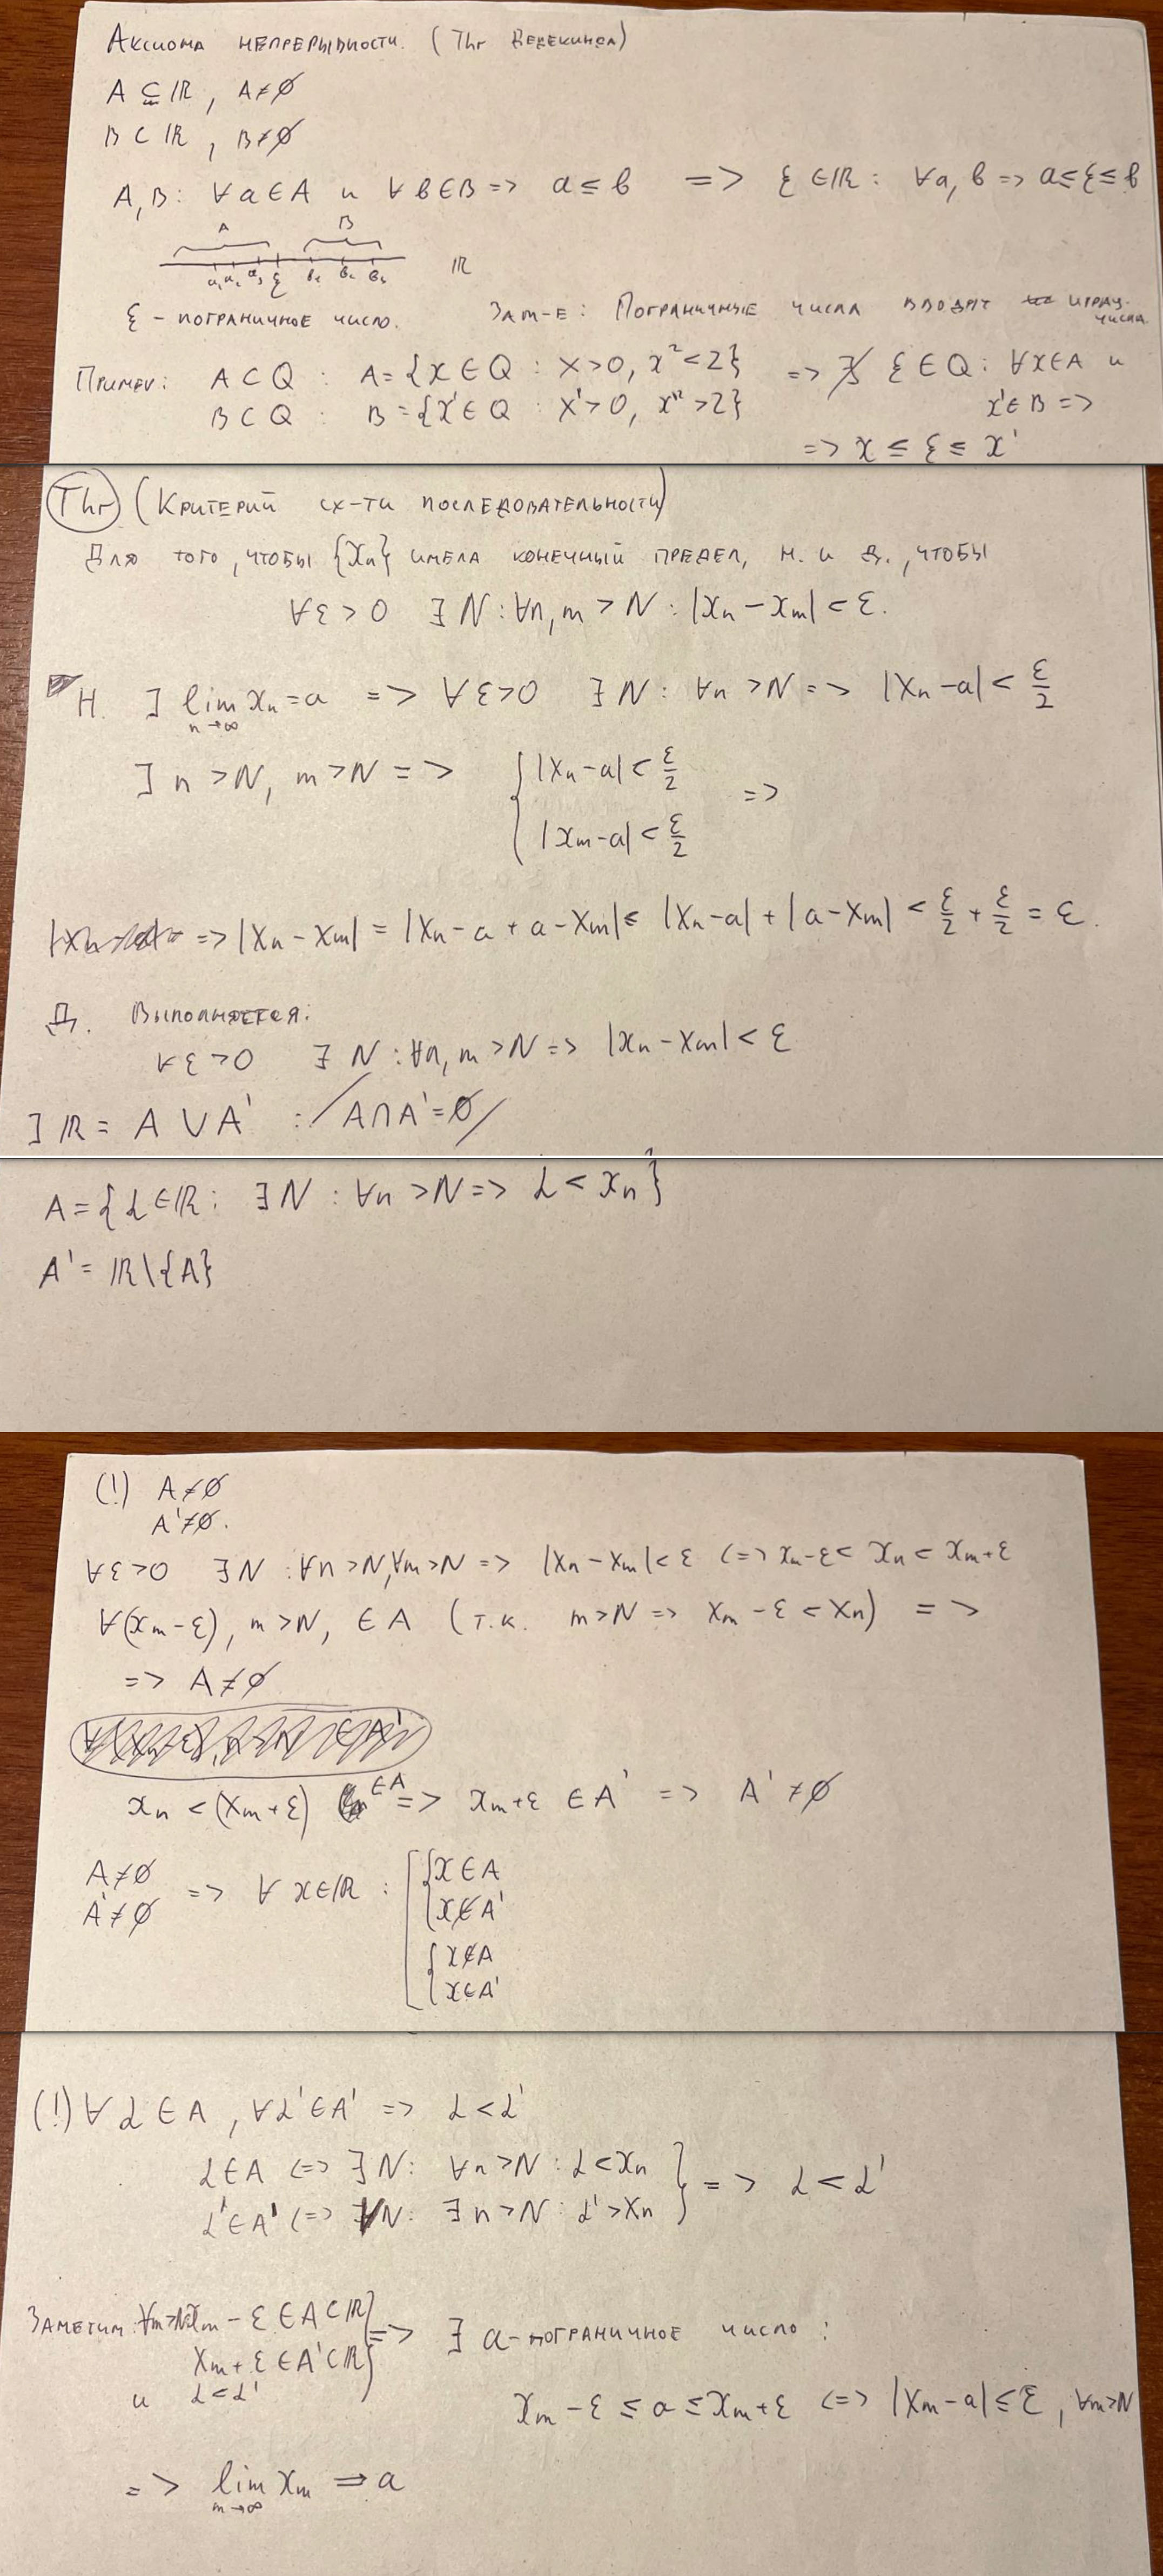 Аксиома непрерывности. (Thr Дедекинда)
A ⊆ ℝ, A ≠ ∅
B ⊂ ℝ, B ≠ ∅
A, B: ∀a∈A и ∀b∈B => a ≤ b => ξ∈ℝ: ∀a, b => a ≤ ξ ≤ b
A B
a₁ a₂ a₃ ξ b₁ b₂ b₃ ℝ
ξ - пограничное число. Зам-е: Пограничные числа вводят иррац. числа.
Пример: A ⊂ Q : A = {x ∈ Q : x > 0, x² < 2} => ∄ ξ ∈ Q: ∀x∈A и
B ⊂ Q : B = {x' ∈ Q : x' > 0, x'² > 2} x'∈B =>
=> x ≤ ξ ≤ x'
Thr (Критерий сх-ти последовательности)
Для того, чтобы {xₙ} имела конечный предел, н. и д., чтобы
∀ε > 0 ∃N : ∀n, m > N : |xₙ - xₘ| < ε.
Н. ∃ lim xₙ = a => ∀ε>0 ∃N: ∀n > N => |xₙ - a| < ε/2
n→∞
∃ n > N, m > N => { |xₙ - a| < ε/2
|xₘ - a| < ε/2 =>
=> |xₙ - xₘ| = |xₙ - a + a - xₘ| ≤ |xₙ - a| + |a - xₘ| < ε/2 + ε/2 = ε.
Д. Выполняется:
∀ε > 0 ∃N : ∀n, m > N => |xₙ - xₘ| < ε
∃ ℝ = A ∪ A' : / A∩A' = ∅ /
A = {α∈ℝ : ∃N : ∀n > N => α < xₙ}
A' = ℝ\{A}
(!) A ≠ ∅
A' ≠ ∅.
∀ε>0 ∃N : ∀n > N, ∀m > N => |xₙ - xₘ| < ε <=> xₘ - ε < xₙ < xₘ + ε
∀(xₘ - ε), m > N, ∈ A (т.к. m > N => xₘ - ε < xₙ) =>
=> A ≠ ∅
xₙ < (xₘ + ε) ∈A => xₘ + ε ∈ A' => A' ≠ ∅
A ≠ ∅
A' ≠ ∅ => ∀ x∈ℝ : [ { x∈A
x∉A'
{ x∉A
x∈A'
(!) ∀ α ∈ A, ∀α' ∈ A' => α < α'
α∈A <=> ∃N: ∀n > N : α < xₙ
α'∈A' <=> ∀N: ∃n > N : α' > xₙ } => α < α'
Заметим: ∀m>N xₘ - ε ∈ A ⊂ ℝ
xₘ + ε ∈ A' ⊂ ℝ } => ∃ a - пограничное число :
и α < α'
xₘ - ε ≤ a ≤ xₘ + ε <=> |xₘ - a| ≤ ε, ∀m > N
=> lim xₘ = a
m→∞